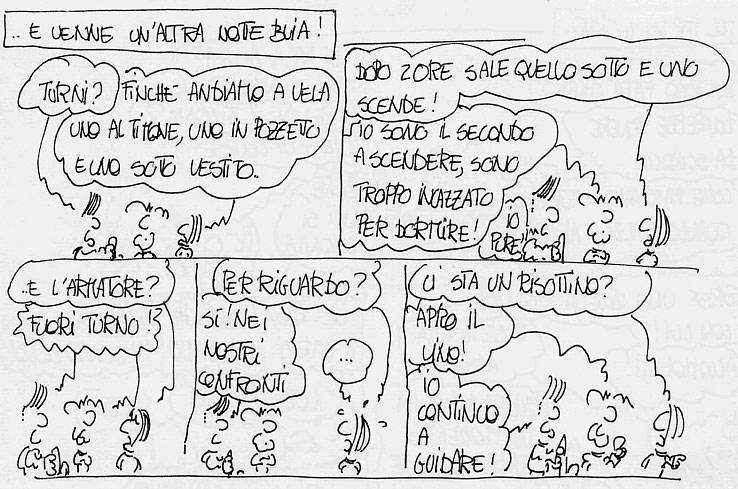 ..E VENNE UN'ALTRA NOTE BUIA!
TURNI?
FINCHE ANDIAMO A VELA
UNO AL TIMONE, UNO IN POZZETTO
E UNO SOTO VESTITO..
DOPO 2 ORE SALE QUELLO SOTTO E UNO
SCENDE!
IO SONO IL SECONDO
A SCENDERE, SONO
TROPPO INCAZZATO
PER DORMIRE!
IO
PURE!
..E L'ARMATORE?
FUORI TURNO!
PER RIGUARDO?
SI! NEI
NOSTRI
CONFRONTI
...
CI STA UN RISOTTINO?
APPRO IL
VINO!
IO
CONTINUO
A
GUIDARE!